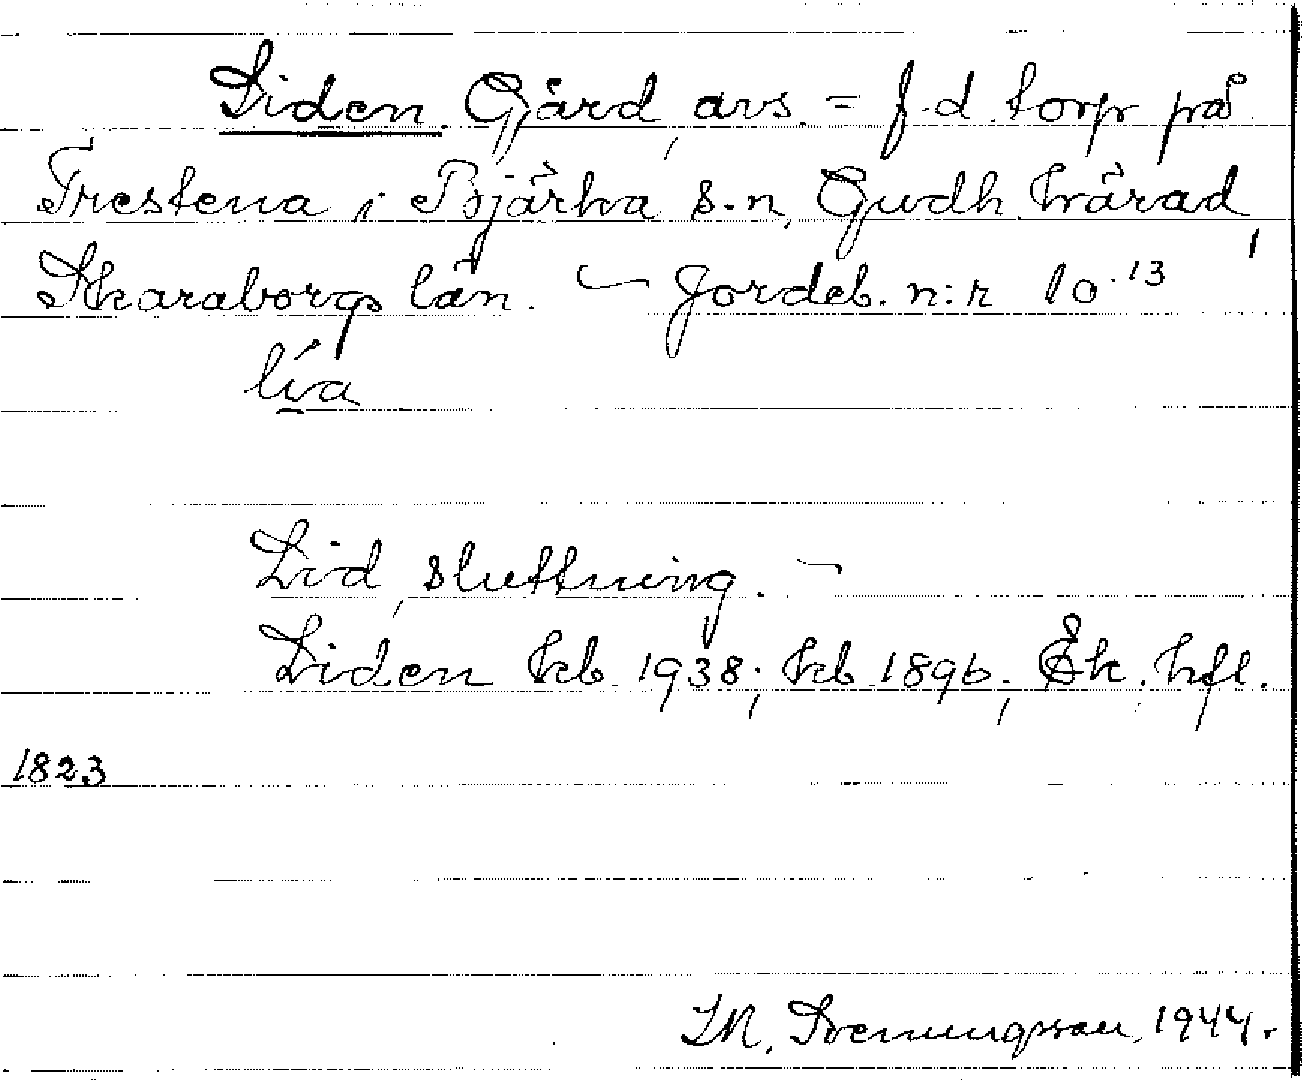 Liden Gård, avs. = f.d. torp på
Trestena i Bjärka s-n, Gudh. härad,
Skaraborgs län. – Jordeb. n:r 10.13
lía
Lid, sluttning. –
Liden kb 1938; kb 1896; Ek. kfl.
1823
Svenungsson, 1944.